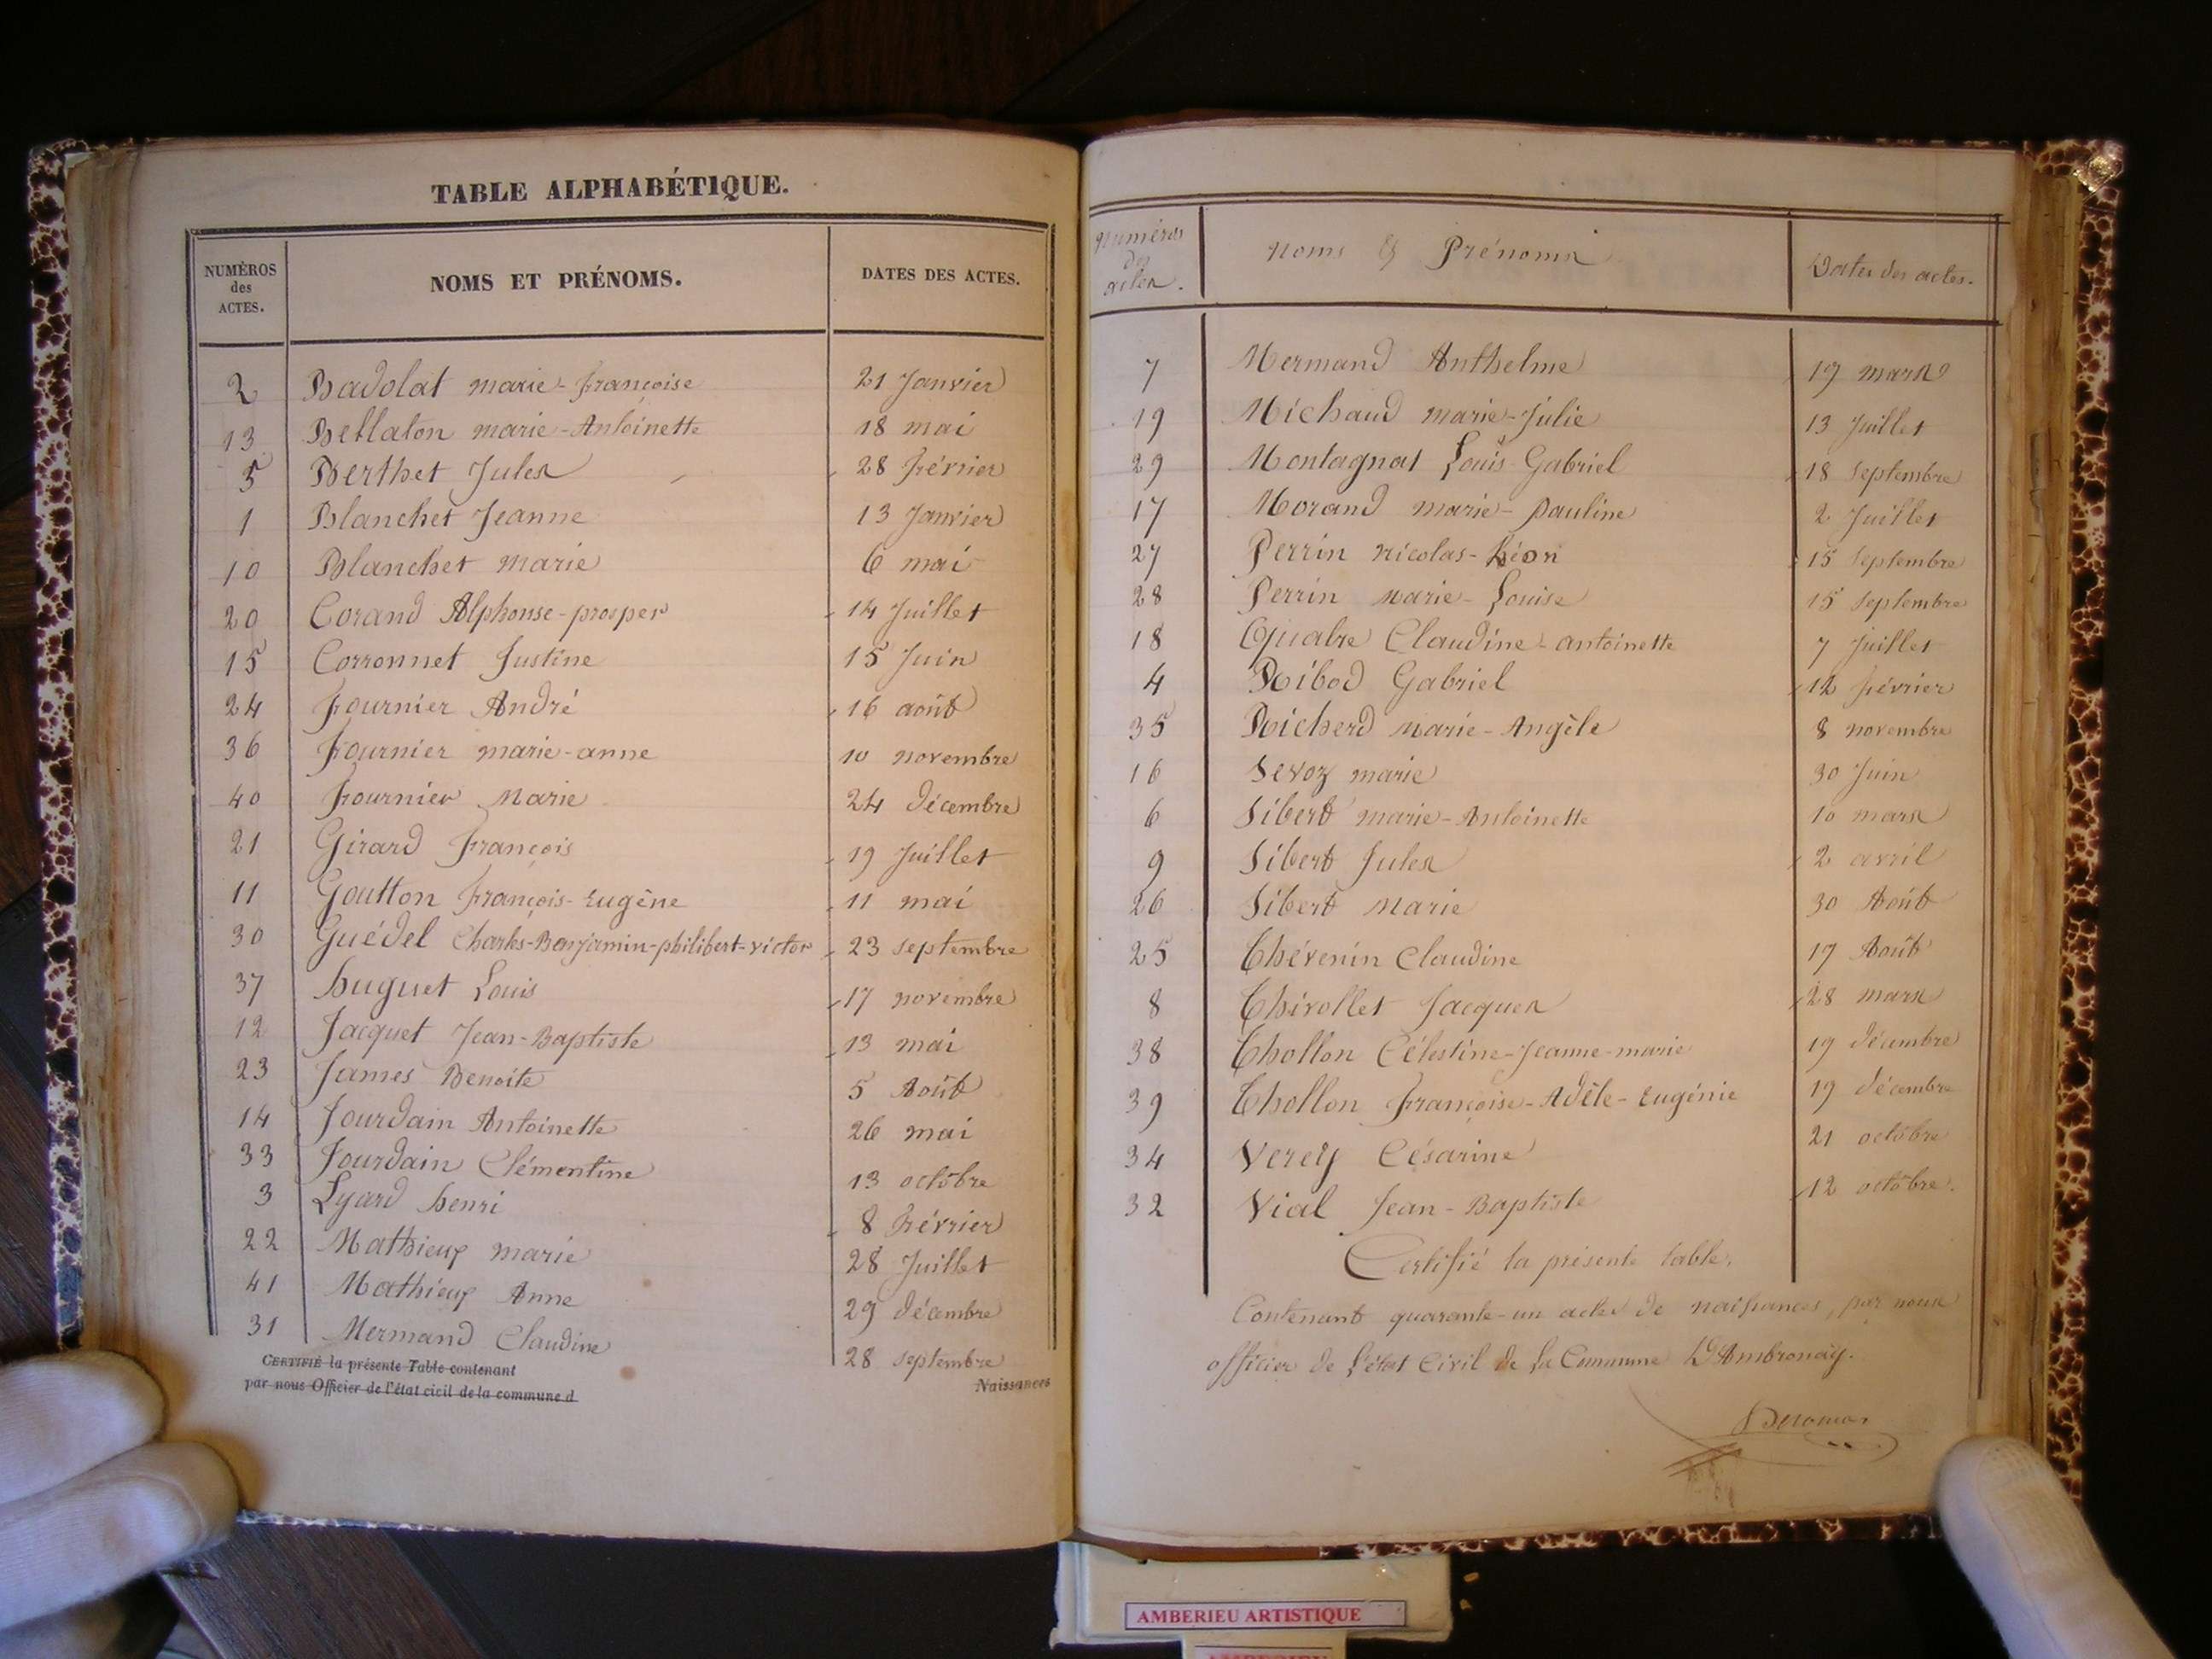 TABLE ALPHABÉTIQUE.
NUMÉROS
des
ACTES.
NOMS ET PRÉNOMS.
DATES DES ACTES.
2 Badolat marie-françoise 21 Janvier
13 Bellaton marie-Antoinette 18 mai
5 Berthet Jules 28 février
1 Blanchet Jeanne 13 Janvier
10 Blanchet marie 6 mai
20 Corand Alphonse-prosper 14 Juillet
15 Corronnet Justine 15 Juin
24 fournier André 16 août
36 fournier marie-anne 10 novembre
40 fournier Marie 24 décembre
21 Girard françois 19 Juillet
11 Goutton françois-Eugène 11 mai
30 Guédel Charles-Benjamin-philibert-victor 23 septembre
37 huguet Louis 17 novembre
12 Jacquet Jean-Baptiste 13 mai
23 James Benoite 5 Août
14 Jourdain Antoinette 26 mai
33 Jourdain Clémentine 13 octobre
3 Lyard henri 8 février
22 Mathieux marie 28 Juillet
41 Mathieux Anne 29 décembre
31 Mermand Claudine 28 septembre
CERTIFIÉ la présente Table contenant Naissances
par nous Officier de l'état cicil de la commune d
Numéros
des
actes.
Noms & Prénoms
Dates des actes.
7 Mermand Anthelme 19 mars
19 Michaud marie-Julie 13 Juillet
29 Montagnat Louis-Gabriel 18 septembre
17 Morand marie-pauline 2 Juillet
27 Perrin nicolas-Léon 15 septembre
28 Perrin marie-Louise 15 septembre
18 Quabre Claudine-antoinette 7 Juillet
4 Ribod Gabriel 12 février
35 Richerd Marie-Angèle 8 novembre
16 Sevoz marie 30 Juin
6 Sibert marie-Antoinette 10 mars
9 Sibert Jules 2 avril
26 Sibert Marie 30 Août
25 Thévenin Claudine 19 Août
8 Thivollet Jacques 28 mars
38 Thollon Célestine-Jeanne-marie 19 décembre
39 Thollon françoise-Adèle-Eugénie 19 décembre
34 Verey Césarine 21 octobre
32 Vial Jean-Baptiste 12 octobre.
Certifié la présente table,
Contenant quarante-un actes de naissances, par nous
officier de l'état Civil de La Commune D'Ambronay.
AMBERIEU ARTISTIQUE
AMBERIEU